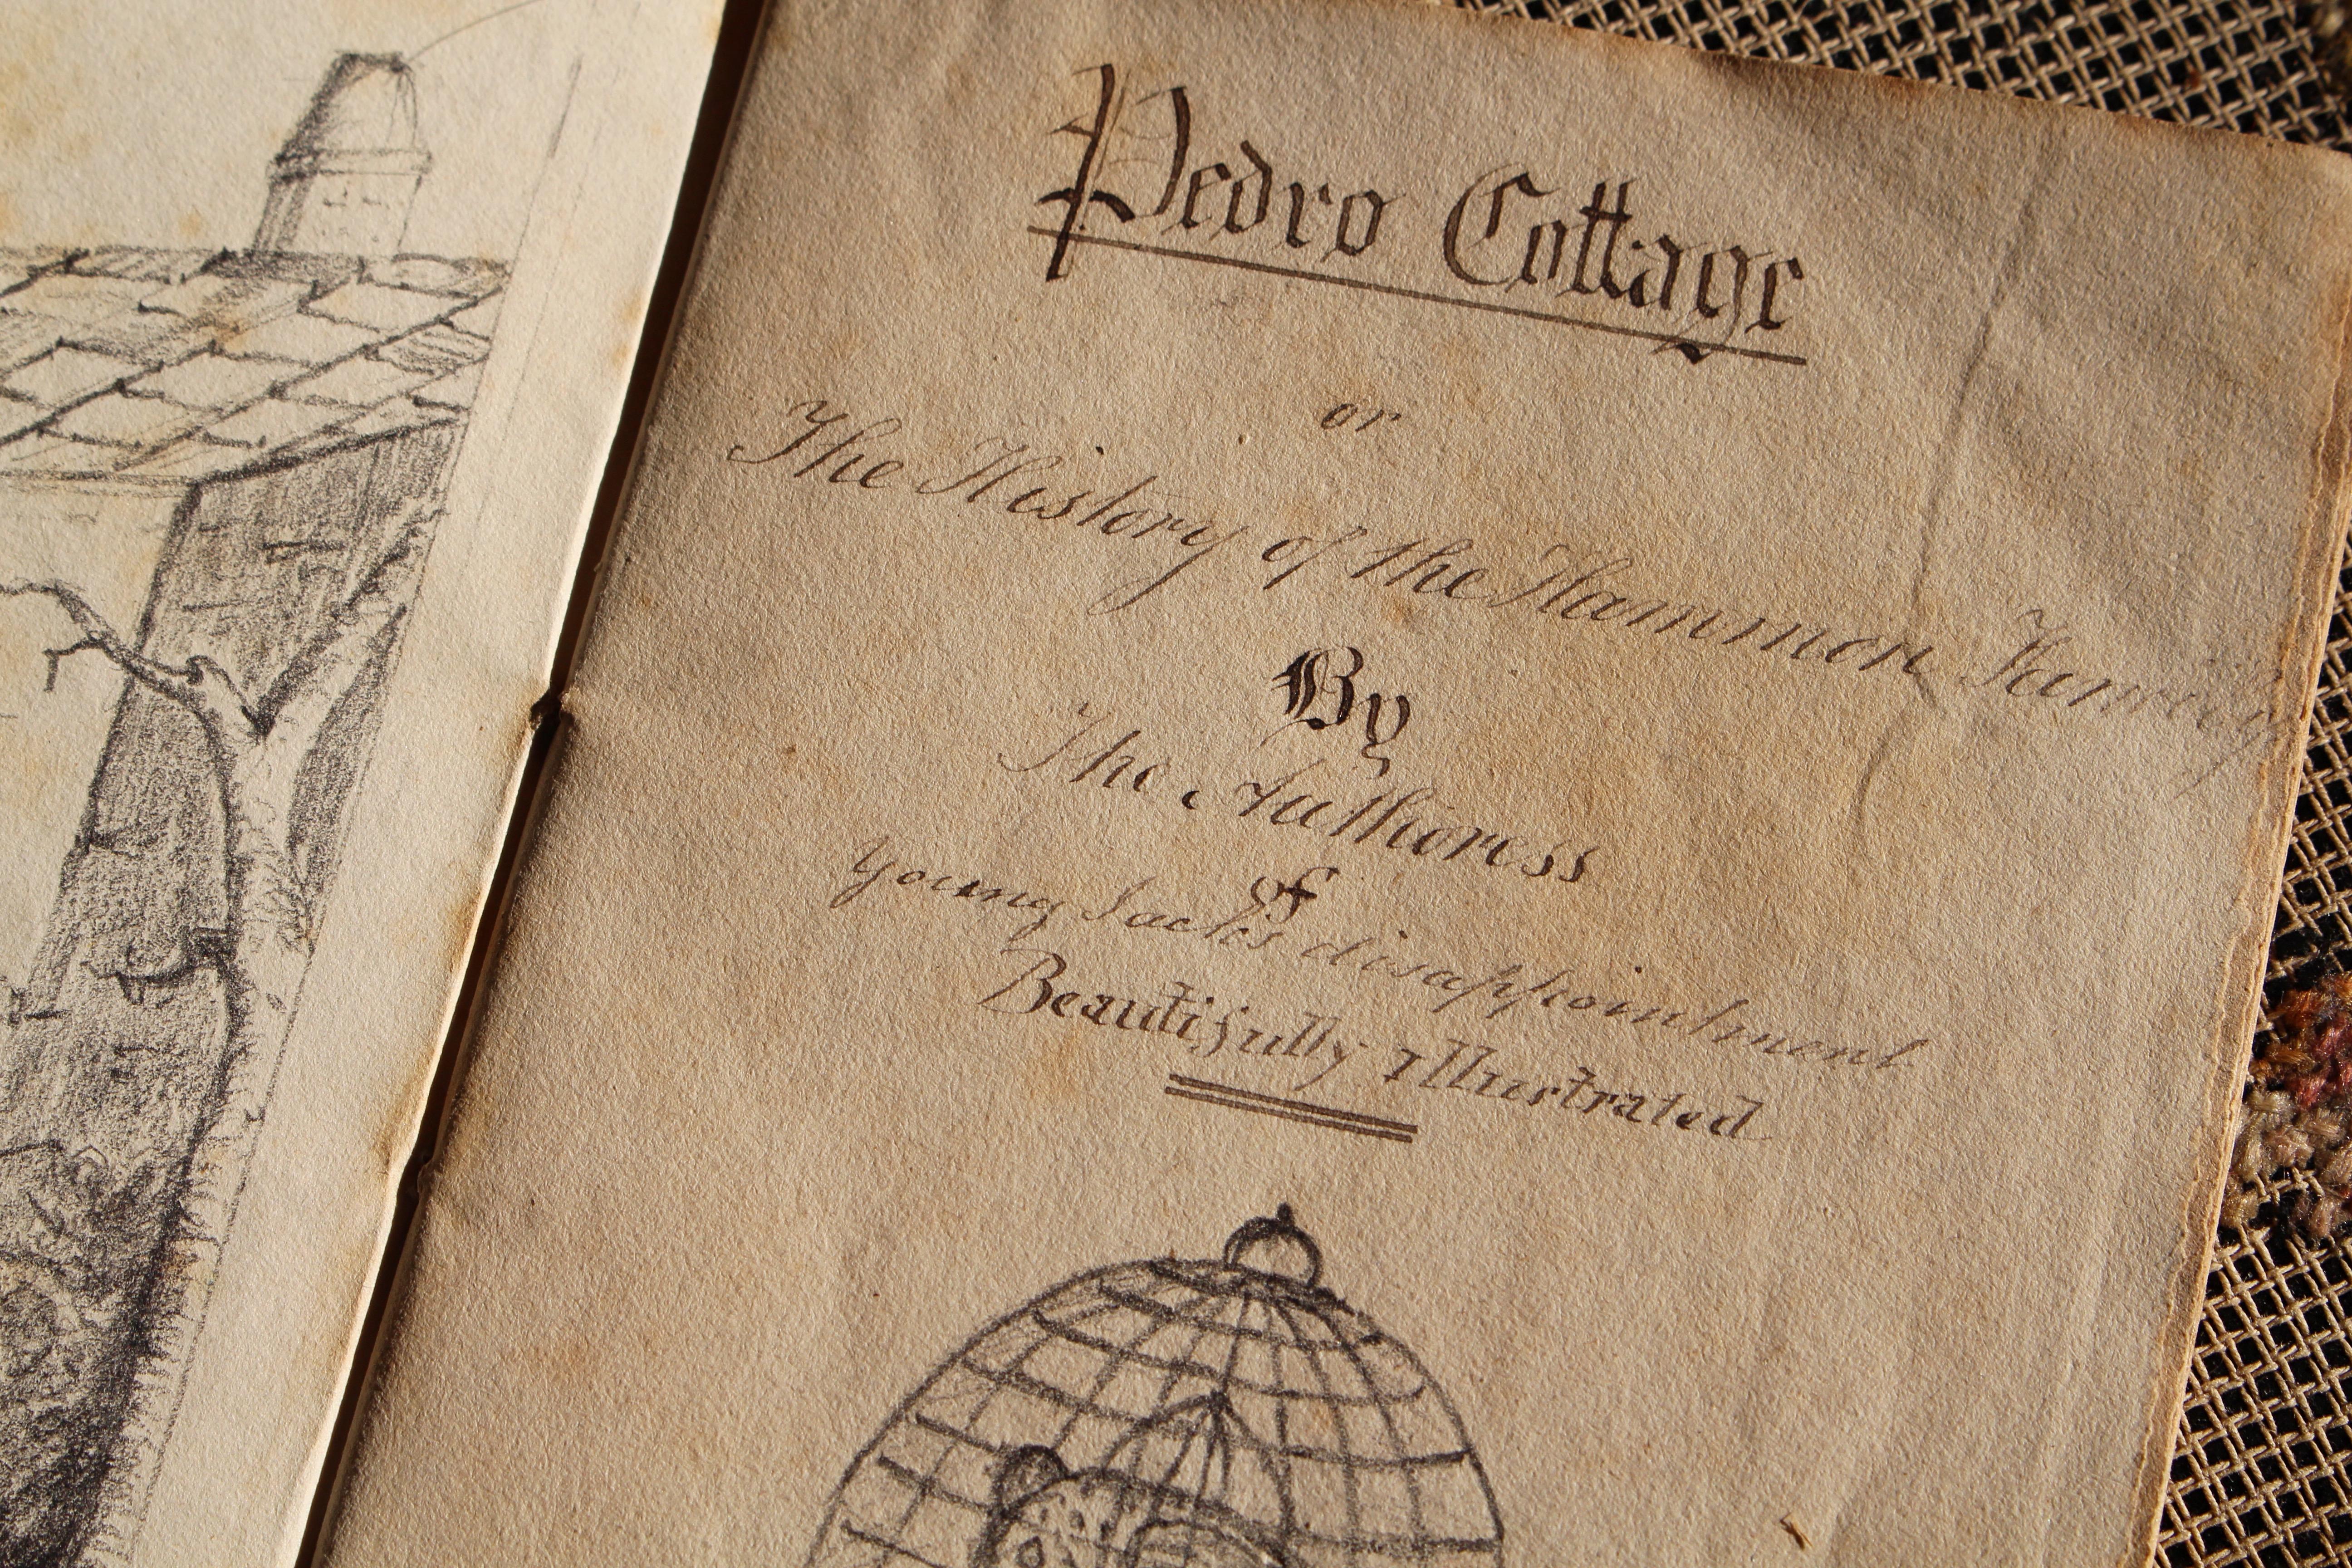 Pedro Cottage
or
The History of the Hammon Family
By
The Authoress
of
Young Jack's disappointment
Beautifully Illustrated